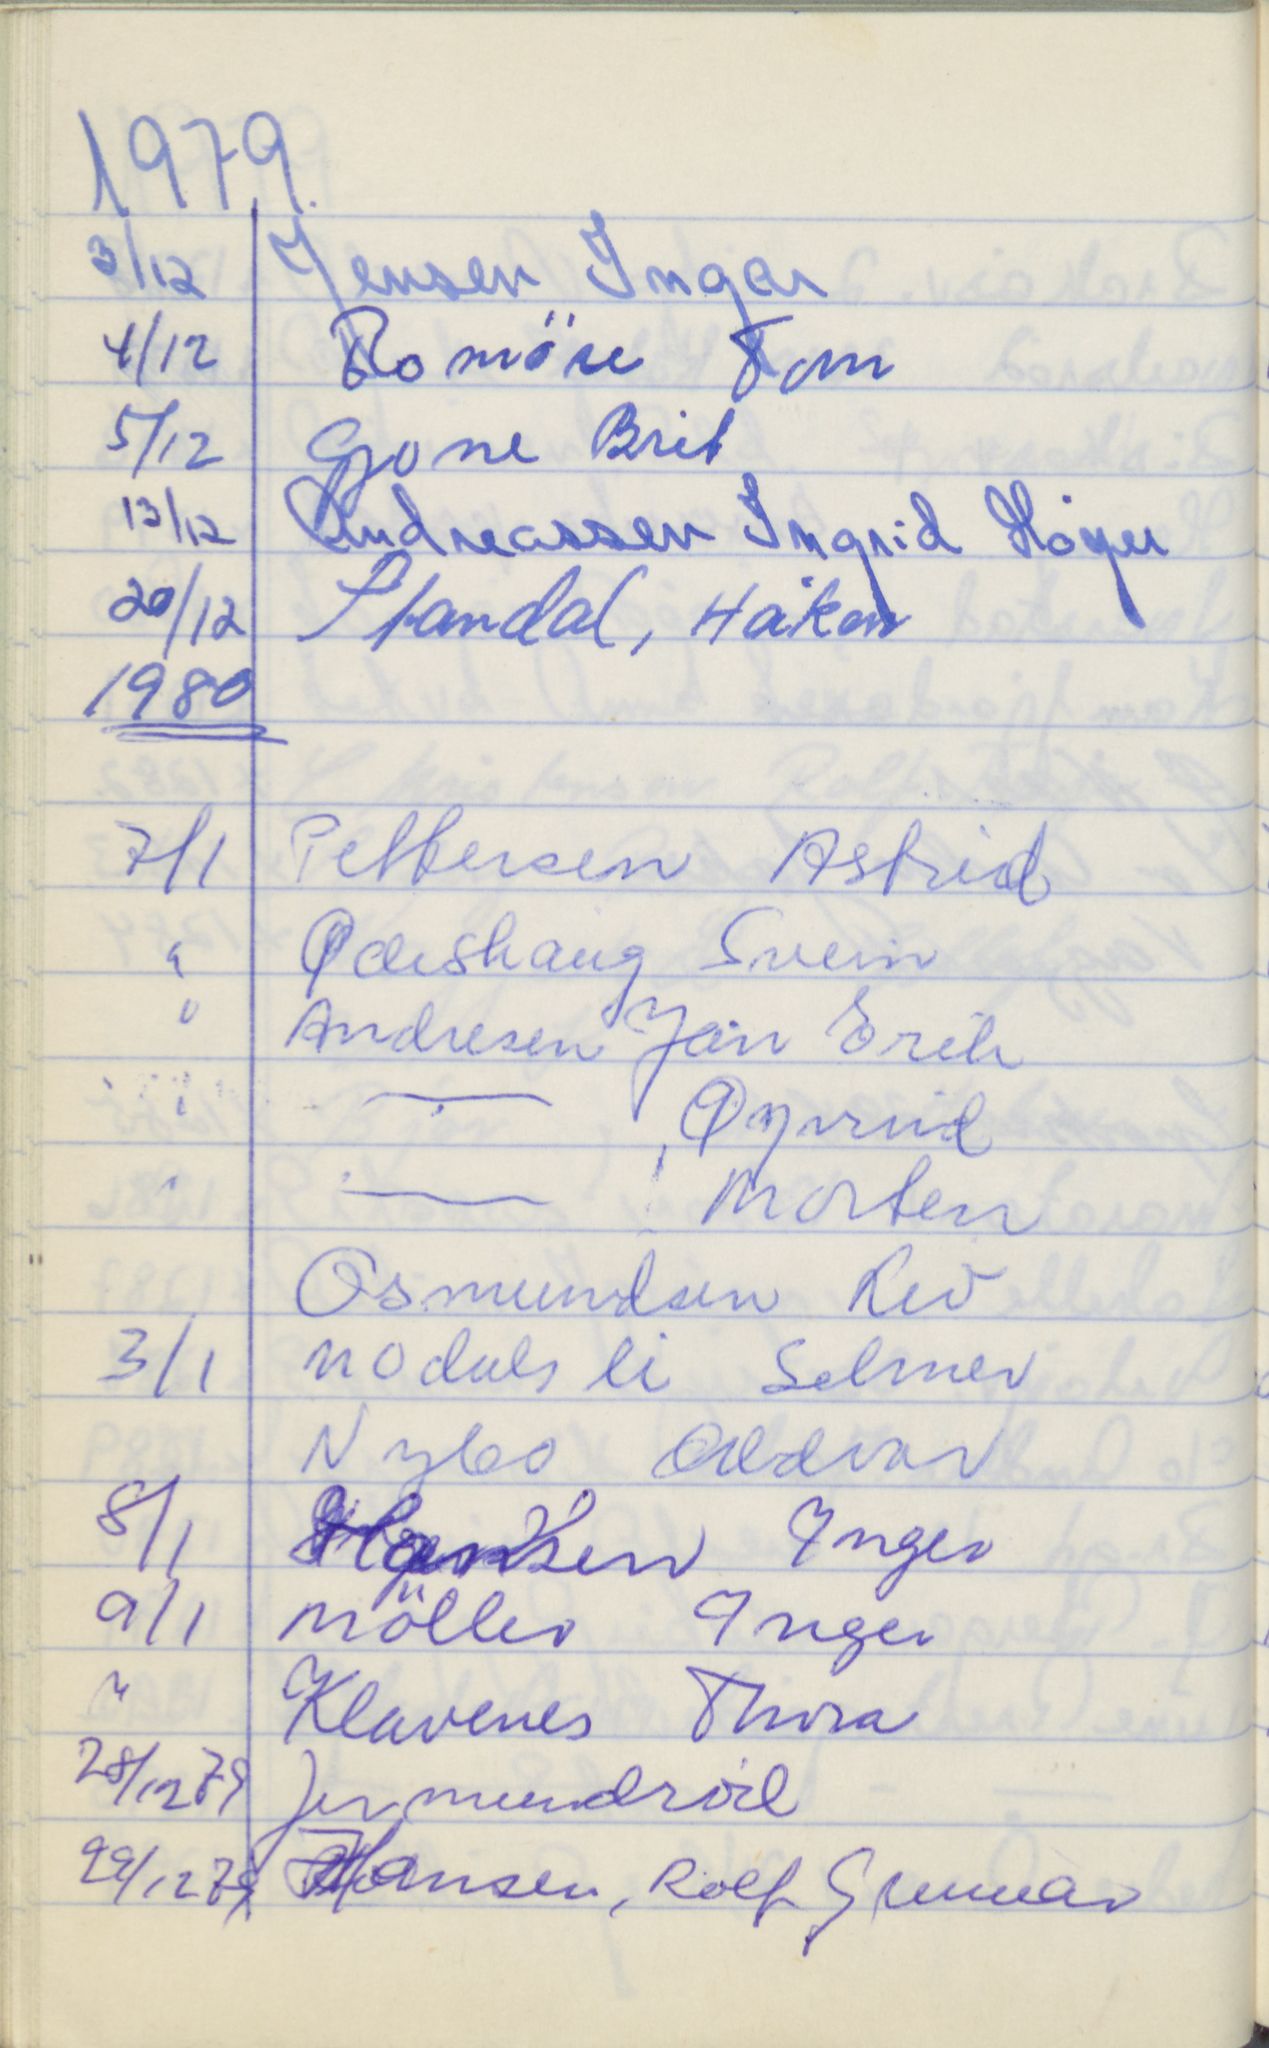 1979.
3/12 Jensen Inger
4/12 Romöre Tom
5/12 Gjone Brit
13/12 Andreassen Ingrid Höyer
20/12 Standal, Håkon
1980
7/1 Pettersen Astrid
" Ødeshaug Svein
" Andresen Jan Erik
" — Øyvind
" — Morten
Osmundsen Leiv
3/1 Selmer
Nybo Oddvar
8/1 Hansen Inger
9/1 Möller Inger
" Klavenes Thora
28/12 79 Jermundrød
29/12 79 Hansen, Rolf Gunnar